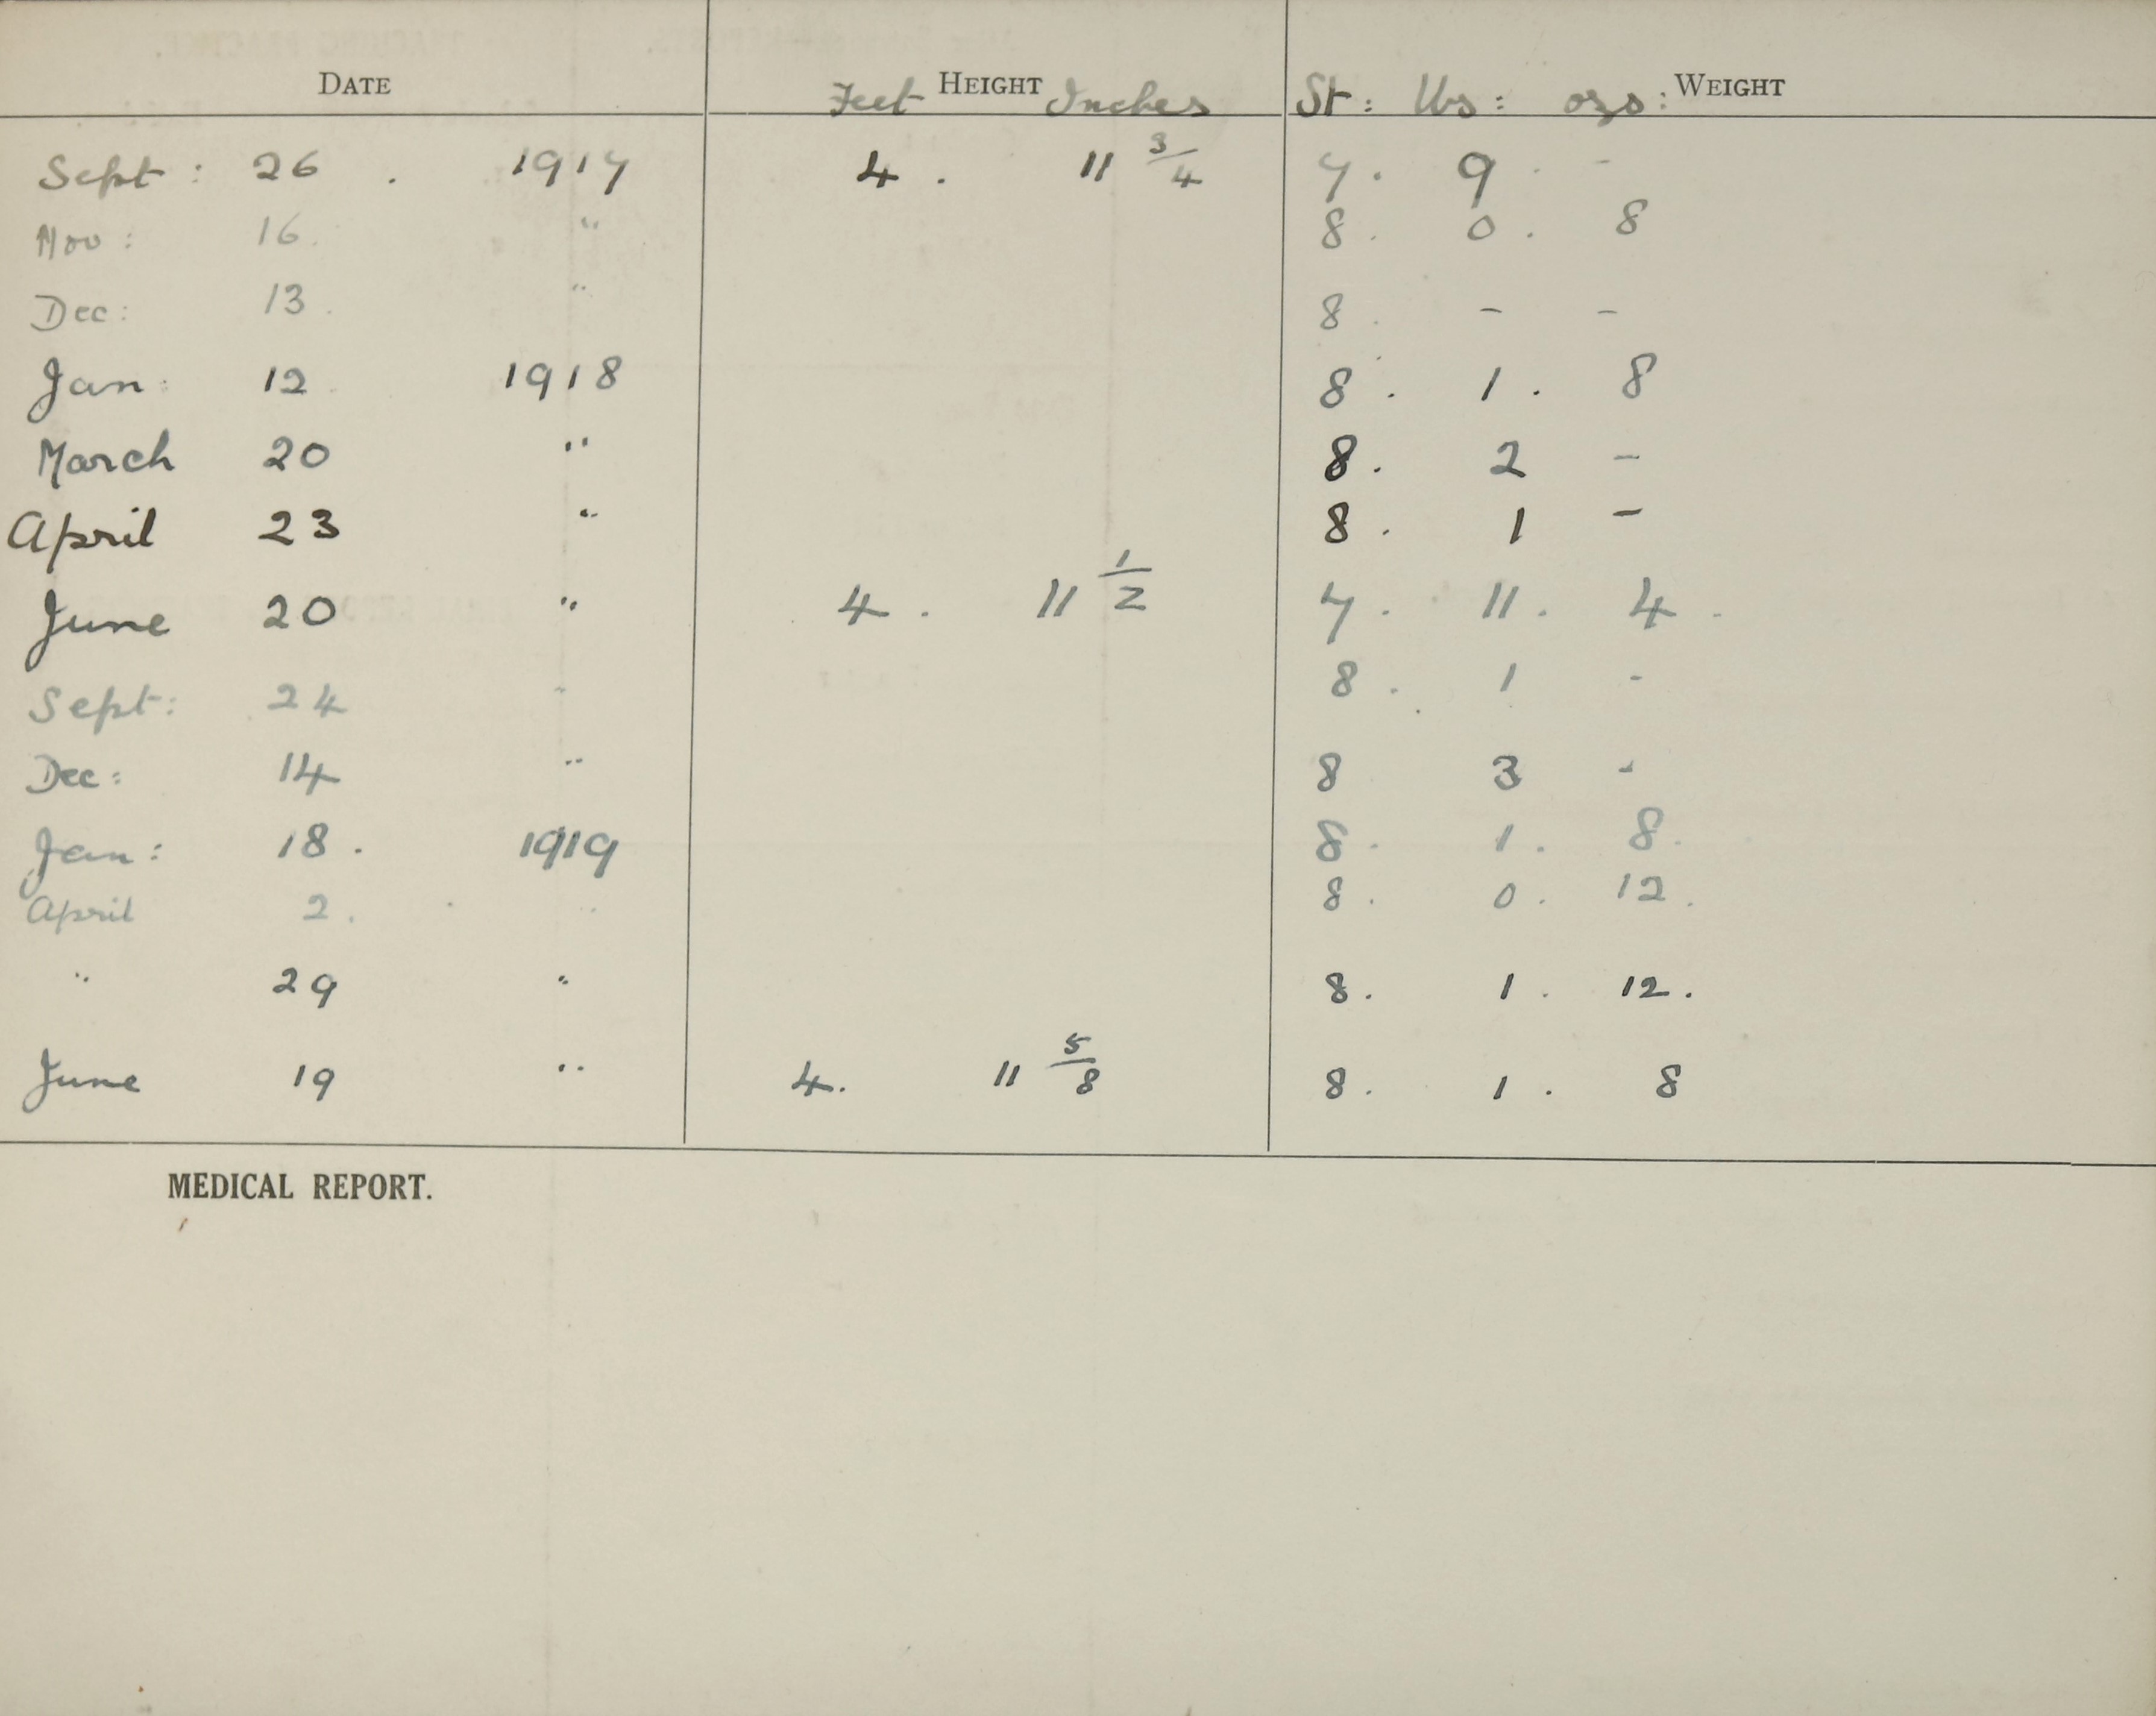 DATE HEIGHT WEIGHT
Feet Inches St: lbs: ozs:
Sept: 26. 1917 4. 11 3/4 7. 9. -
Nov: 16. " 8. 0. 8
Dec: 13. " 8. - -
Jan: 12. 1918 8. 1. 8
March 20 " 8. 2 -
April 23 " 8. 1 -
June 20 " 4. 11 1/2 7. 11. 4.
Sept: 24 " 8. 1 -
Dec: 14 " 8 3 -
Jan: 18. 1919 8. 1. 8.
April 2. " 8. 0. 12.
" 29 " 8. 1. 12.
June 19 " 4. 11 5/8 8. 1. 8
MEDICAL REPORT.